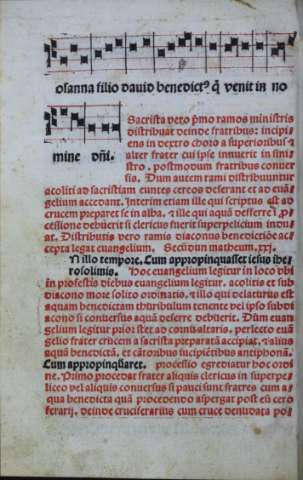 osanna filio dauid benedictꝰ q̄ venit in no
mine dñi.
Sacrista vero p̄mo ramos ministris
distribuat deinde fratribus: incipi
ens in dextro choro a superioribus ⁊
alter frater cui ipse innuerit in sini
stro. postmodum fratribus conuer
sis. Dum autem rami distribuuntur
acoliti ad sacristiam euntes cereos deferant et ad euā
gelium accendant. Interim etiam ille qui scriptus est ad
crucem preparet se in alba. ⁊ ille qui aquā desferret ī p̄
cessione debuerit si clericus fuerit superpelicium indu
at. Distributis vero ramis diaconus benedictiōe ac
cepta legat euangelium. Secūdum matheum. xxj.
N illo tempore. Cum appropinquasset iesus ihe
rosolimis. Hoc euangelium legitur in loco vbi
in profestis diebus euangelium legitur. acolitis et sub
diacono more solito ordinatis. ⁊ illo qui delaturus est
aquam benedictam thuribulum tenente vel ipso subdi
acono si conuersus aquā deferre debuerit. Dum euan
gelium legitur prior stet ad cornu altaris. perlecto euā
gelio frater crucem a sacrista preparatā accipiat. ⁊ alius
aquā benedictā. et cātoribus īcipiētibus antiphonā.
Cum appropinquaret. processio egrediatur hoc ordi
ne. Primo procedat frater aliquis clericus in superpe
liceo vel aliquis conuersus si pauci sunt fratres cum a
qua benedicta quā procedendo aspergat post eū cero
ferarij. deinde cruciferarius cum cruce denudata po